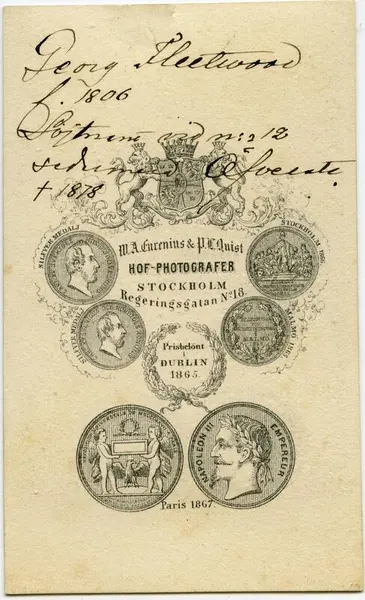 Georg Fleetwood
f. 1806
Löjtnant vid n:o 12
sedermera Öfverste.
† 1878
SILFVER MEDALJ
STOCKHOLM 1866
W.A. Eurenius & P.L. Quist
HOF-PHOTOGRAFER
STOCKHOLM
Regeringsgatan No 18.
SILFVER MEDALJ
MALMÖ 1865
Prisbelönt
i
DUBLIN
1865.
NAPOLEON III EMPEREUR
Paris 1867.